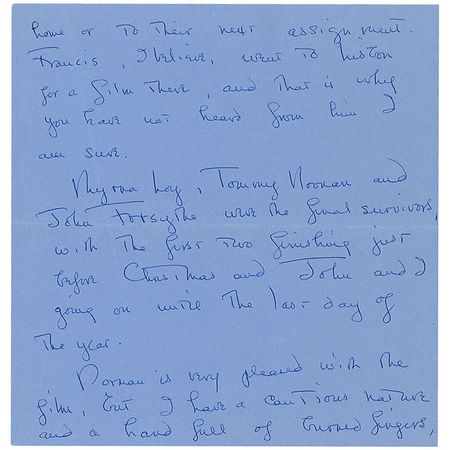 home or to their next assignment.
Francis, I believe, went to
for a film there, and that is why
you have not heard from him I
am sure.
Myrna Loy, Tommy Noonan and
John Forsythe were the final survivors,
with the first two finishing just
before Christmas and John and I
going on until the last day of
the year.
Norman is very pleased with the
film, but I have a cautious nature
and a hand full of burned fingers,